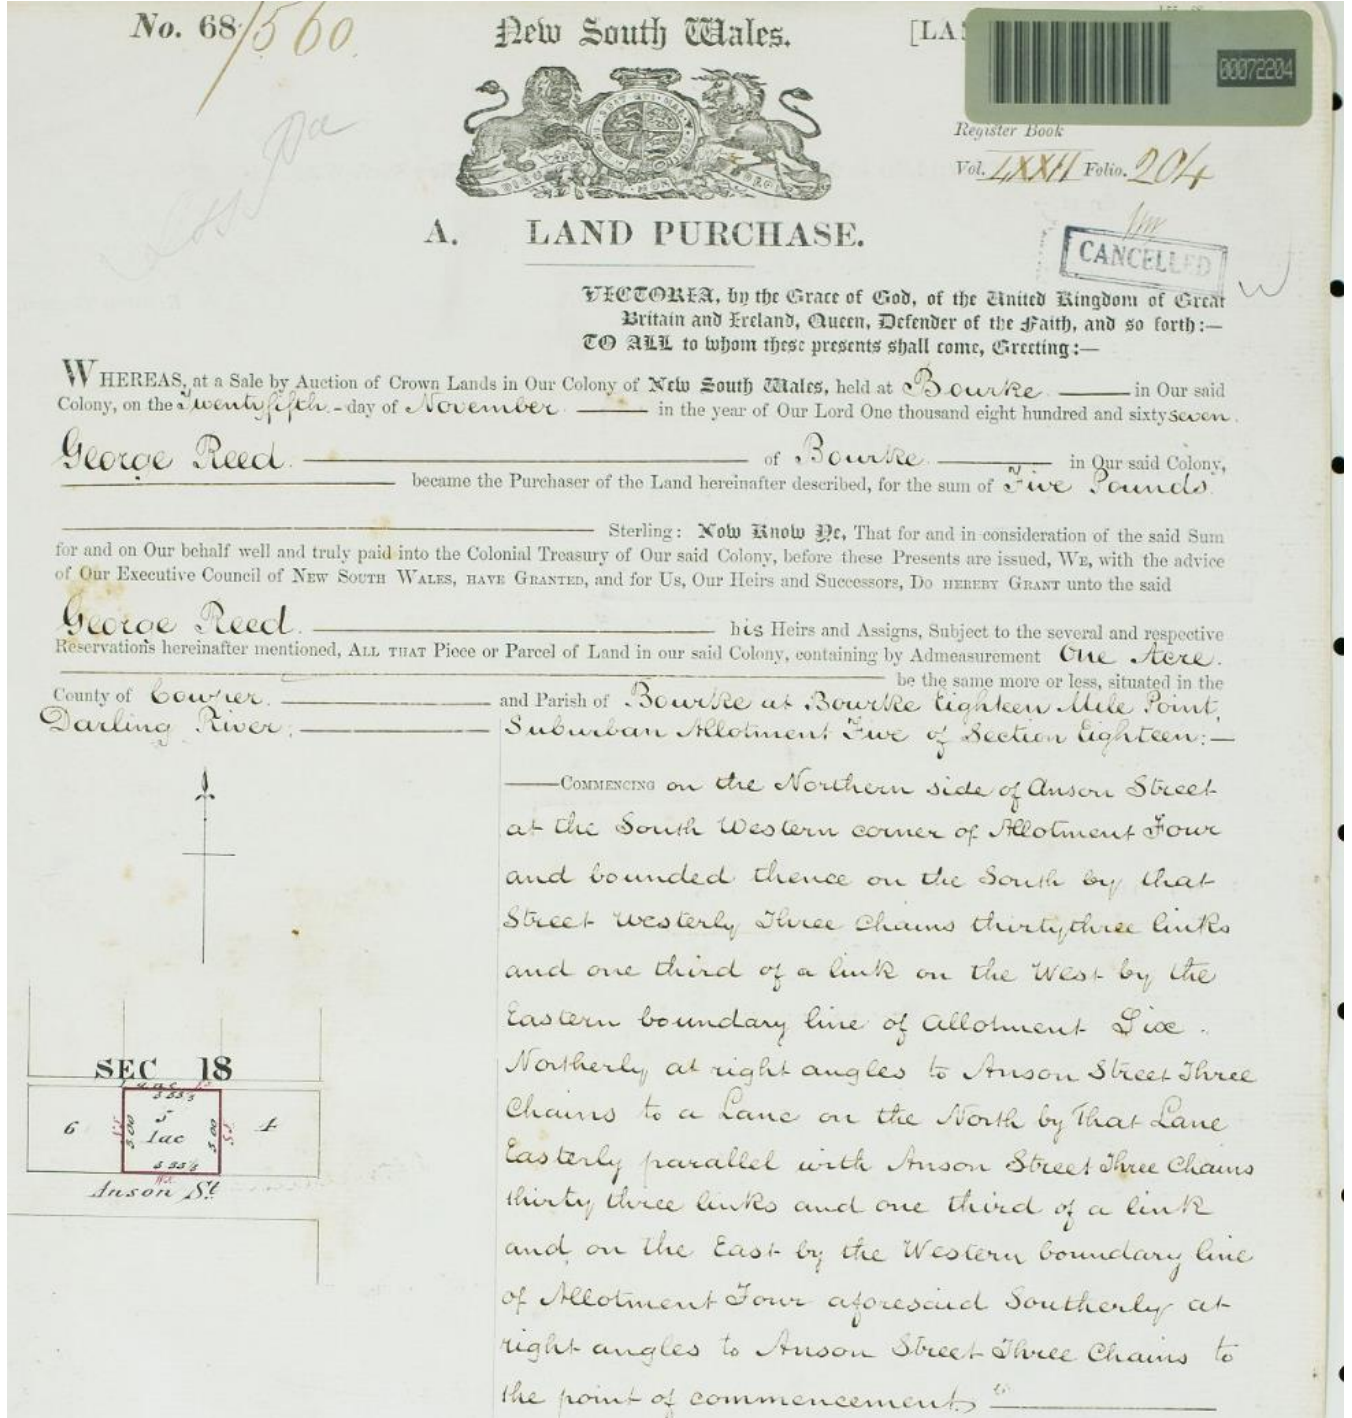 No. 68/560.
New South Wales.
[LA
00072204
Register Book
Vol. LXXII Folio. 204
A. LAND PURCHASE.
CANCELLED
VICTORIA, by the Grace of God, of the United Kingdom of Great
Britain and Ireland, Queen, Defender of the Faith, and so forth:—
TO ALL to whom these presents shall come, Greeting:—
WHEREAS, at a Sale by Auction of Crown Lands in Our Colony of New South Wales, held at Bourke — in Our said
Colony, on the Twentyfifth - day of November — in the year of Our Lord One thousand eight hundred and sixty seven.
George Reed. — of Bourke. — in Our said Colony,
— became the Purchaser of the Land hereinafter described, for the sum of Five Pounds.
— Sterling: Now Know Ye, That for and in consideration of the said Sum
for and on Our behalf well and truly paid into the Colonial Treasury of Our said Colony, before these Presents are issued, WE, with the advice
of Our Executive Council of NEW SOUTH WALES, HAVE GRANTED, and for Us, Our Heirs and Successors, DO HEREBY GRANT unto the said
George Reed. — his Heirs and Assigns, Subject to the several and respective
Reservations hereinafter mentioned, ALL THAT Piece or Parcel of Land in our said Colony, containing by Admeasurement One Acre.
— be the same more or less, situated in the
County of Cowper. — and Parish of Bourke at Bourke Eighteen Mile Point,
Darling River; — Suburban Allotment Five of Section Eighteen:—
— COMMENCING on the Northern side of Anson Street
at the South Western corner of Allotment Four
and bounded thence on the South by that
Street Westerly Three Chains thirtythree links
and one third of a link on the West by the
Eastern boundary line of Allotment Six.
Northerly at right angles to Anson Street Three
Chains to a Lane on the North by That Lane
Easterly parallel with Anson Street Three Chains
thirty three links and one third of a link
and on the East by the Western boundary line
of Allotment Four aforesaid Southerly at
right angles to Anson Street Three Chains to
the point of commencement. —
SEC 18
6
5
1ac
4
3.00
3.00
Anson St.